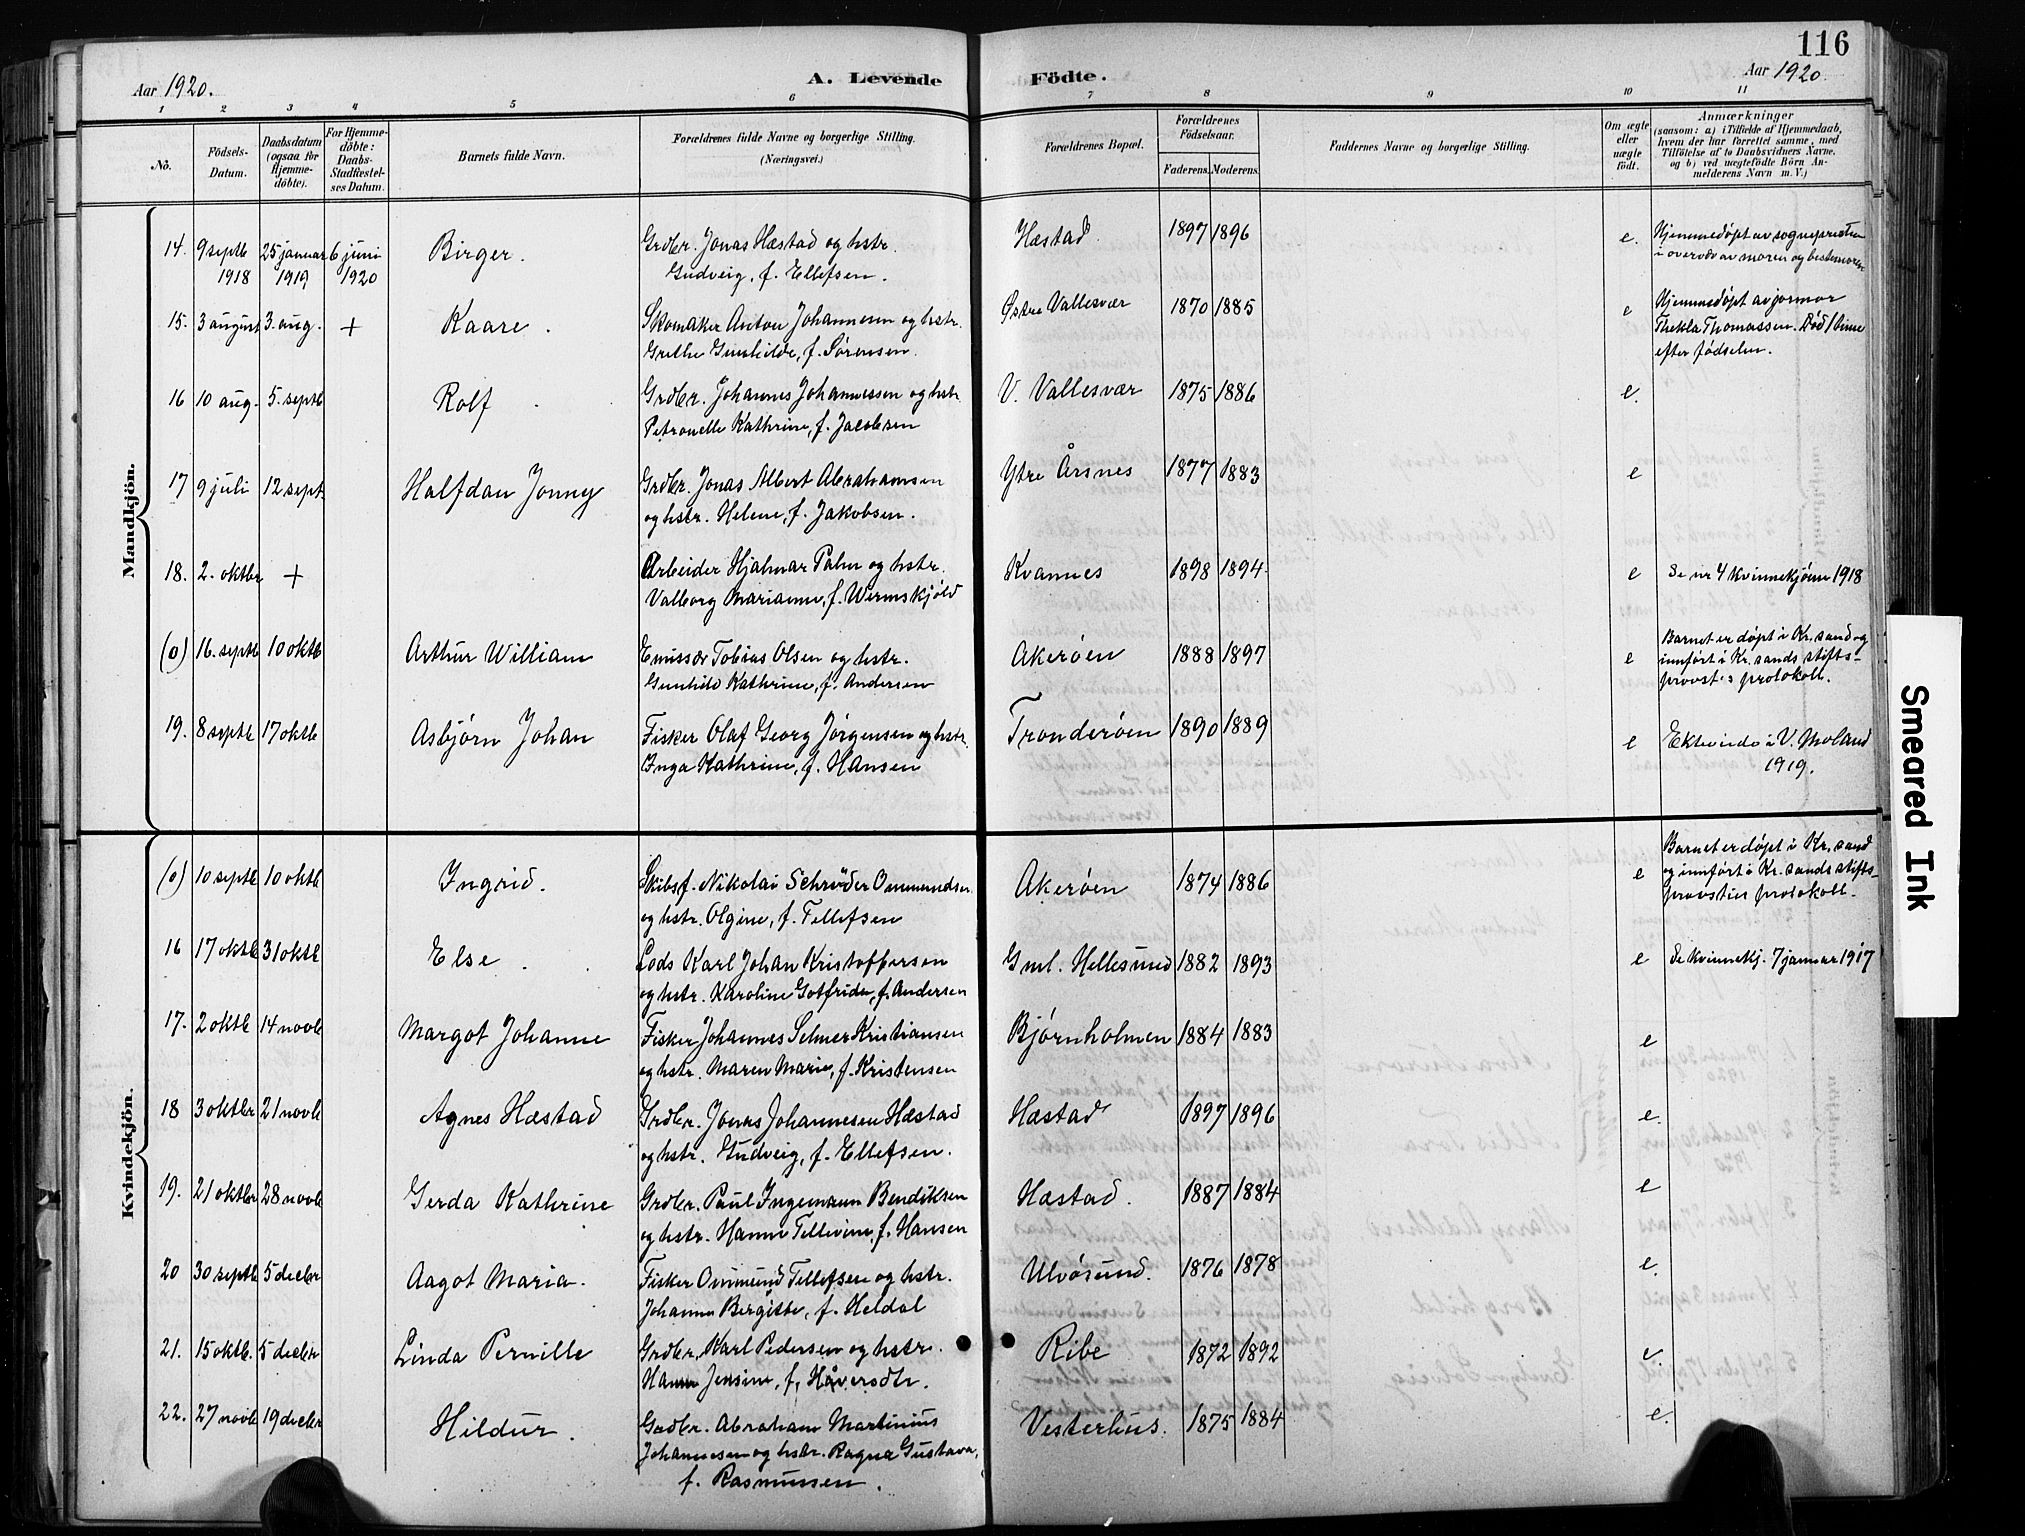 116
Aar 1920.
A. Levende
Födte.
Aar 1920.
1 2 3 4 5 6 7 8 9 10 11
No.
Födsels-Datum.
Daabsdatum (ogsaa for Hjemmedöbte).
For Hjemmedöbte: Daabs-Stadfestelses Datum.
Barnets fulde Navn.
Forældrenes fulde Navne og borgerlige Stilling. (Næringsvei.)
Forældrenes Bopæl.
Forældrenes Födselsaar.
Faderens. Moderens.
Faddernes Navne og borgerlige Stilling.
Om ægte eller uægte födt.
Anmærkninger
(saasom: a) i Tilfælde af Hjemmedaab, hvem der har forrettet samme, med Tilföielse af to Daabsvidners Navne, og b) ved uægtefödte Börn Anmelderens Navn m. V.)
Mandkjön.
14. 9 septb 1918 25 januar 1919 6 juni 1920 Birger. Grdbr. Jonas Hæstad og hstr. Gudveig, f. Ellefsen. Hæstad. 1897 1896 e. Hjemmedøpt av sognepresten i overvær av moren og bestemoren
15. 3 august 3. aug. + Kaare. Skomaker Anton Johannesen og hstr. Grethe Gunhilde, f. Sørensen. Østre Vallesvær 1870 1885 e Hjemmedøpt av jormor Thekla Thomassen. Død 1 time efter fødselen.
16 10 aug. 5. septb Rolf. Grdbr. Johannes Johannessen og hstr. Petronelle Kathrine, f. Jacobsen V. Vallesvær 1875 1886 e.
17 9 juli 12 sept. Halfdan Jonny Grdbr. Jonas Albert Abrahamsen og hstr. Helene, f. Jakobsen. Ytre Årsnes 1877 1883 e
18. 2. oktbr + Arbeider Hjalmar Palm og hstr. Valborg Marianne, f. Wermskjöld Kvannes 1898 1894 e Se nr 4 kvinnekjønn 1918
(0) 16. septb 10 oktb Arthur William Emissær Tobias Olsen og hstr. Gunhild Kathrine, f. Andersen Akerøen 1888 1897 e Barnet er døpt i Kr.sand og innført i Kr.sands stiftsprovsti's protokoll.
19. 8 septb 17 oktb Asbjørn Johan Fisker Olaf Georg Jørgensen og hstr. Inga Kathrine, f. Hansen Tronderöen 1890 1889 e Ekteviede i V. Moland 1919.
Kvindekjön.
(0) 10 septb 10 oktb Ingrid. Skibsf. Nikolai Schrøder Ommundsen og hstr. Olgine, f. Tellefsen Akerøen 1874 1886 e Barnet er døpt i Kr.sand og innført i Kr.sands stiftsprovsties protokoll.
16 17 oktb 31 oktb Else. Lods Karl Johan Kristoffersen og hstr. Karoline Gotfride, f. Andersen Gml. Hellesund 1882 1893 e Se kvinnekj. 7 januar 1917
17. 2 oktb 14 novb Margot Johanne Fisker Johannes Selmer Kristiansen og hstr. Maren Marie, f. Kristensen Bjørnholmen 1884 1883 e
18 3 oktbr 21 novb Agnes Hæstad Grdbr. Jonas Johannesen Hæstad og hstr. Gudveig, f. Ellefsen. Hæstad 1897 1896 e.
19. 21 oktbr 28 novb Gerda Kathrine Grdbr. Paul Ingemann Bendiksen og hstr. Hanne Tellevine, f. Hansen Hæstad. 1887 1884 e
20 30 septb 5 decbr Aagot Maria. Fisker Ommund Tellefsen og hstr. Johanne Bergitte, f. Heldal Ulvøsund. 1876 1878 e.
21. 15 oktb. 5 decbr Linda Pernille Grdbr. Karl Pedersen og hstr. Hanne Jensine, f. Håversdtr. Ribe 1872 1892 e.
22. 27 novb 19 decbr Hildur. Grdbr. Abraham Martinius Johannesen og hstr. Ragna Gustava, f. Rasmussen. Vesterhus. 1875 1884 e.
Smeared Ink